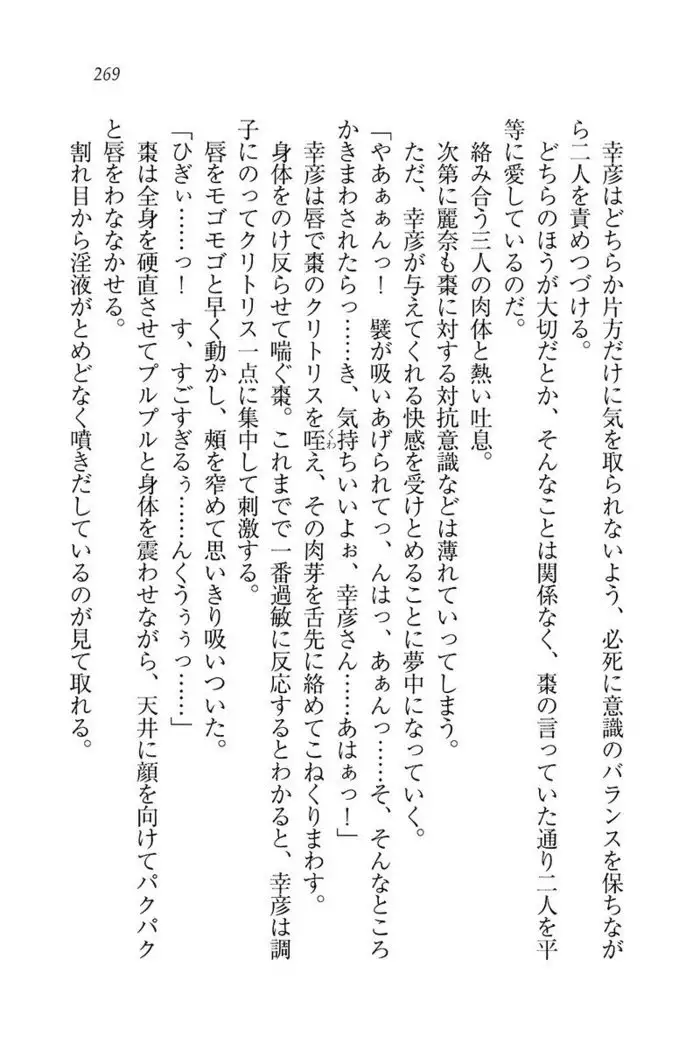 269
幸彦はどちらか片方だけに気を取られないよう、必死に意識のバランスを保ちなが
ら二人を責めつづける。
どちらのほうが大切だとか、そんなことは関係なく、棗の言っていた通り二人を平
等に愛しているのだ。
絡み合う三人の肉体と熱い吐息。
次第に麗奈も棗に対する対抗意識などは薄れていってしまう。
ただ、幸彦が与えてくれる快感を受けとめることに夢中になっていく。
「やあぁぁんっ！　襞が吸いあげられてっ、んはっ、あぁんっ……そ、そんなところ
かきまわされたらっ……き、気持ちいいよぉ、幸彦さん……あはぁっ！」
幸彦は唇で棗のクリトリスを咥くわえ、その肉芽を舌先に絡めてこねくりまわす。
身体をのけ反らせて喘ぐ棗。これまでで一番過敏に反応するとわかると、幸彦は調
子にのってクリトリス一点に集中して刺激する。
唇をモゴモゴと早く動かし、頰を窄めて思いきり吸いついた。
「ひぎぃ……っ！　す、すごすぎるぅ……んくうぅぅっ……」
棗は全身を硬直させてプルプルと身体を震わせながら、天井に顔を向けてパクパク
と唇をわななかせる。
割れ目から淫液がとめどなく噴きだしているのが見て取れる。